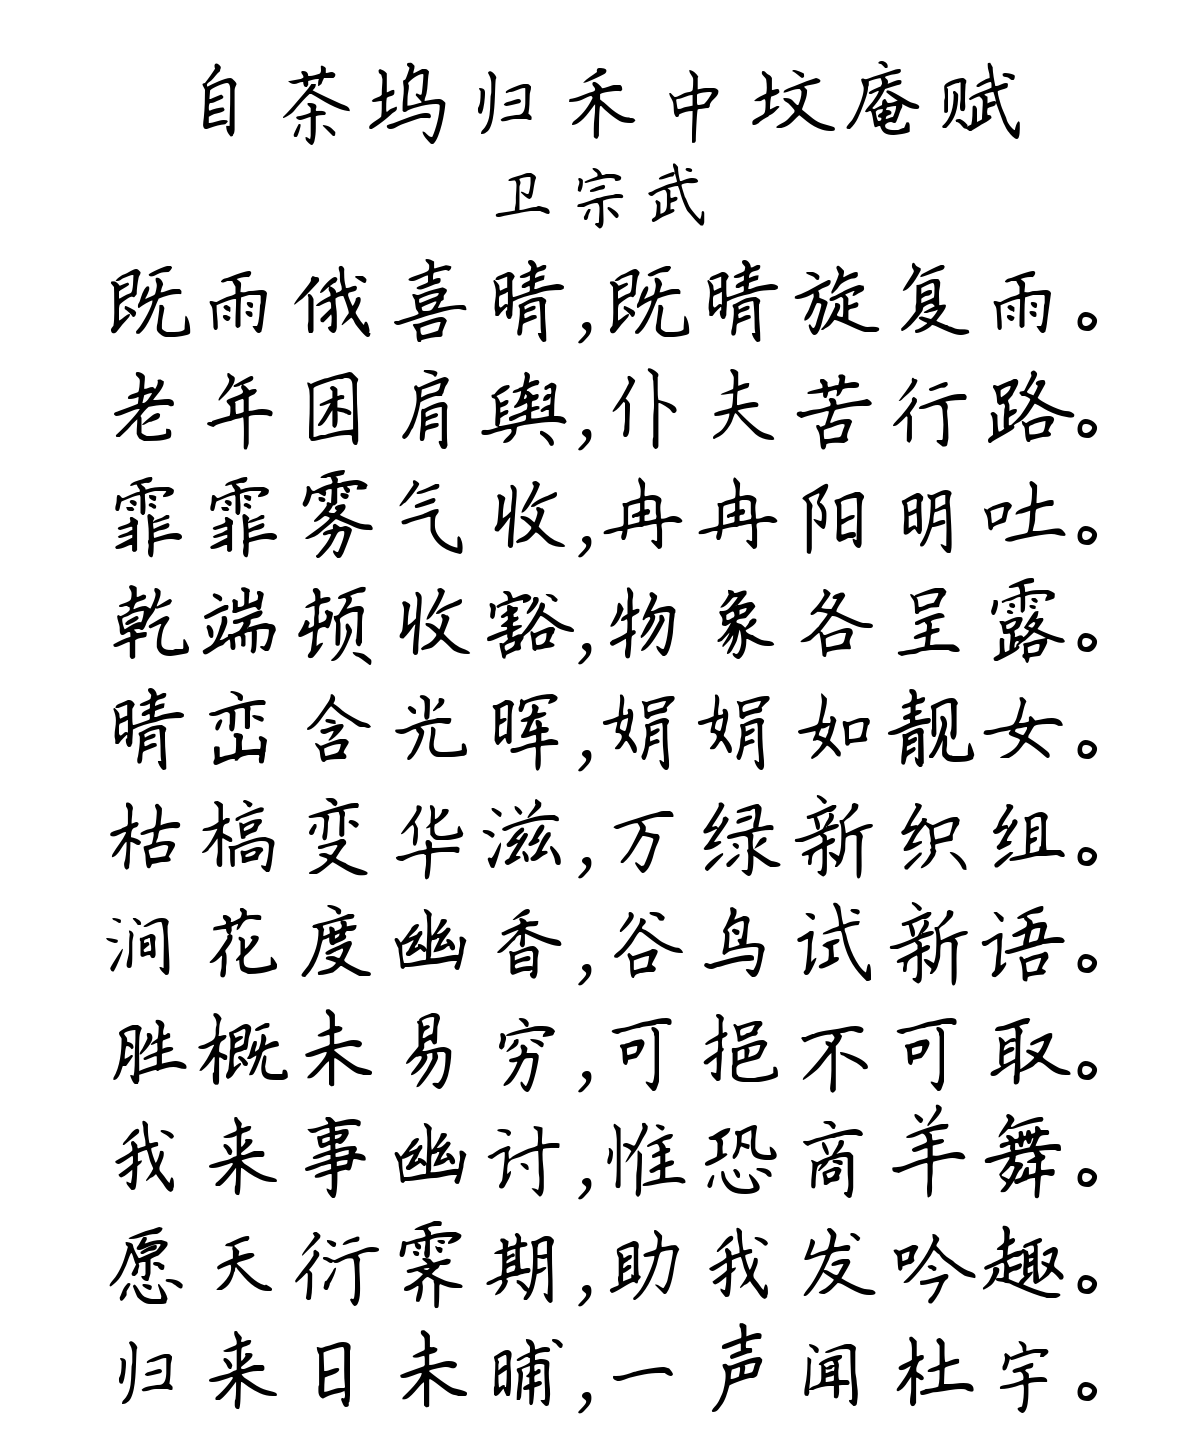 自茶坞归禾中坟庵赋
卫宗武
既雨俄喜晴,既晴旋复雨。
老年困肩舆,仆夫苦行路。
霏霏雾气收,冉冉阳明吐。
乾端顿收豁,物象各呈露。
晴峦含光晖,娟娟如靓女。
枯槁变华滋,万绿新织组。
涧花度幽香,谷鸟试新语。
胜概未易穷,可挹不可取。
我来事幽讨,惟恐商羊舞。
愿天衍霁期,助我发吟趣。
归来日未晡,一声闻杜宇。